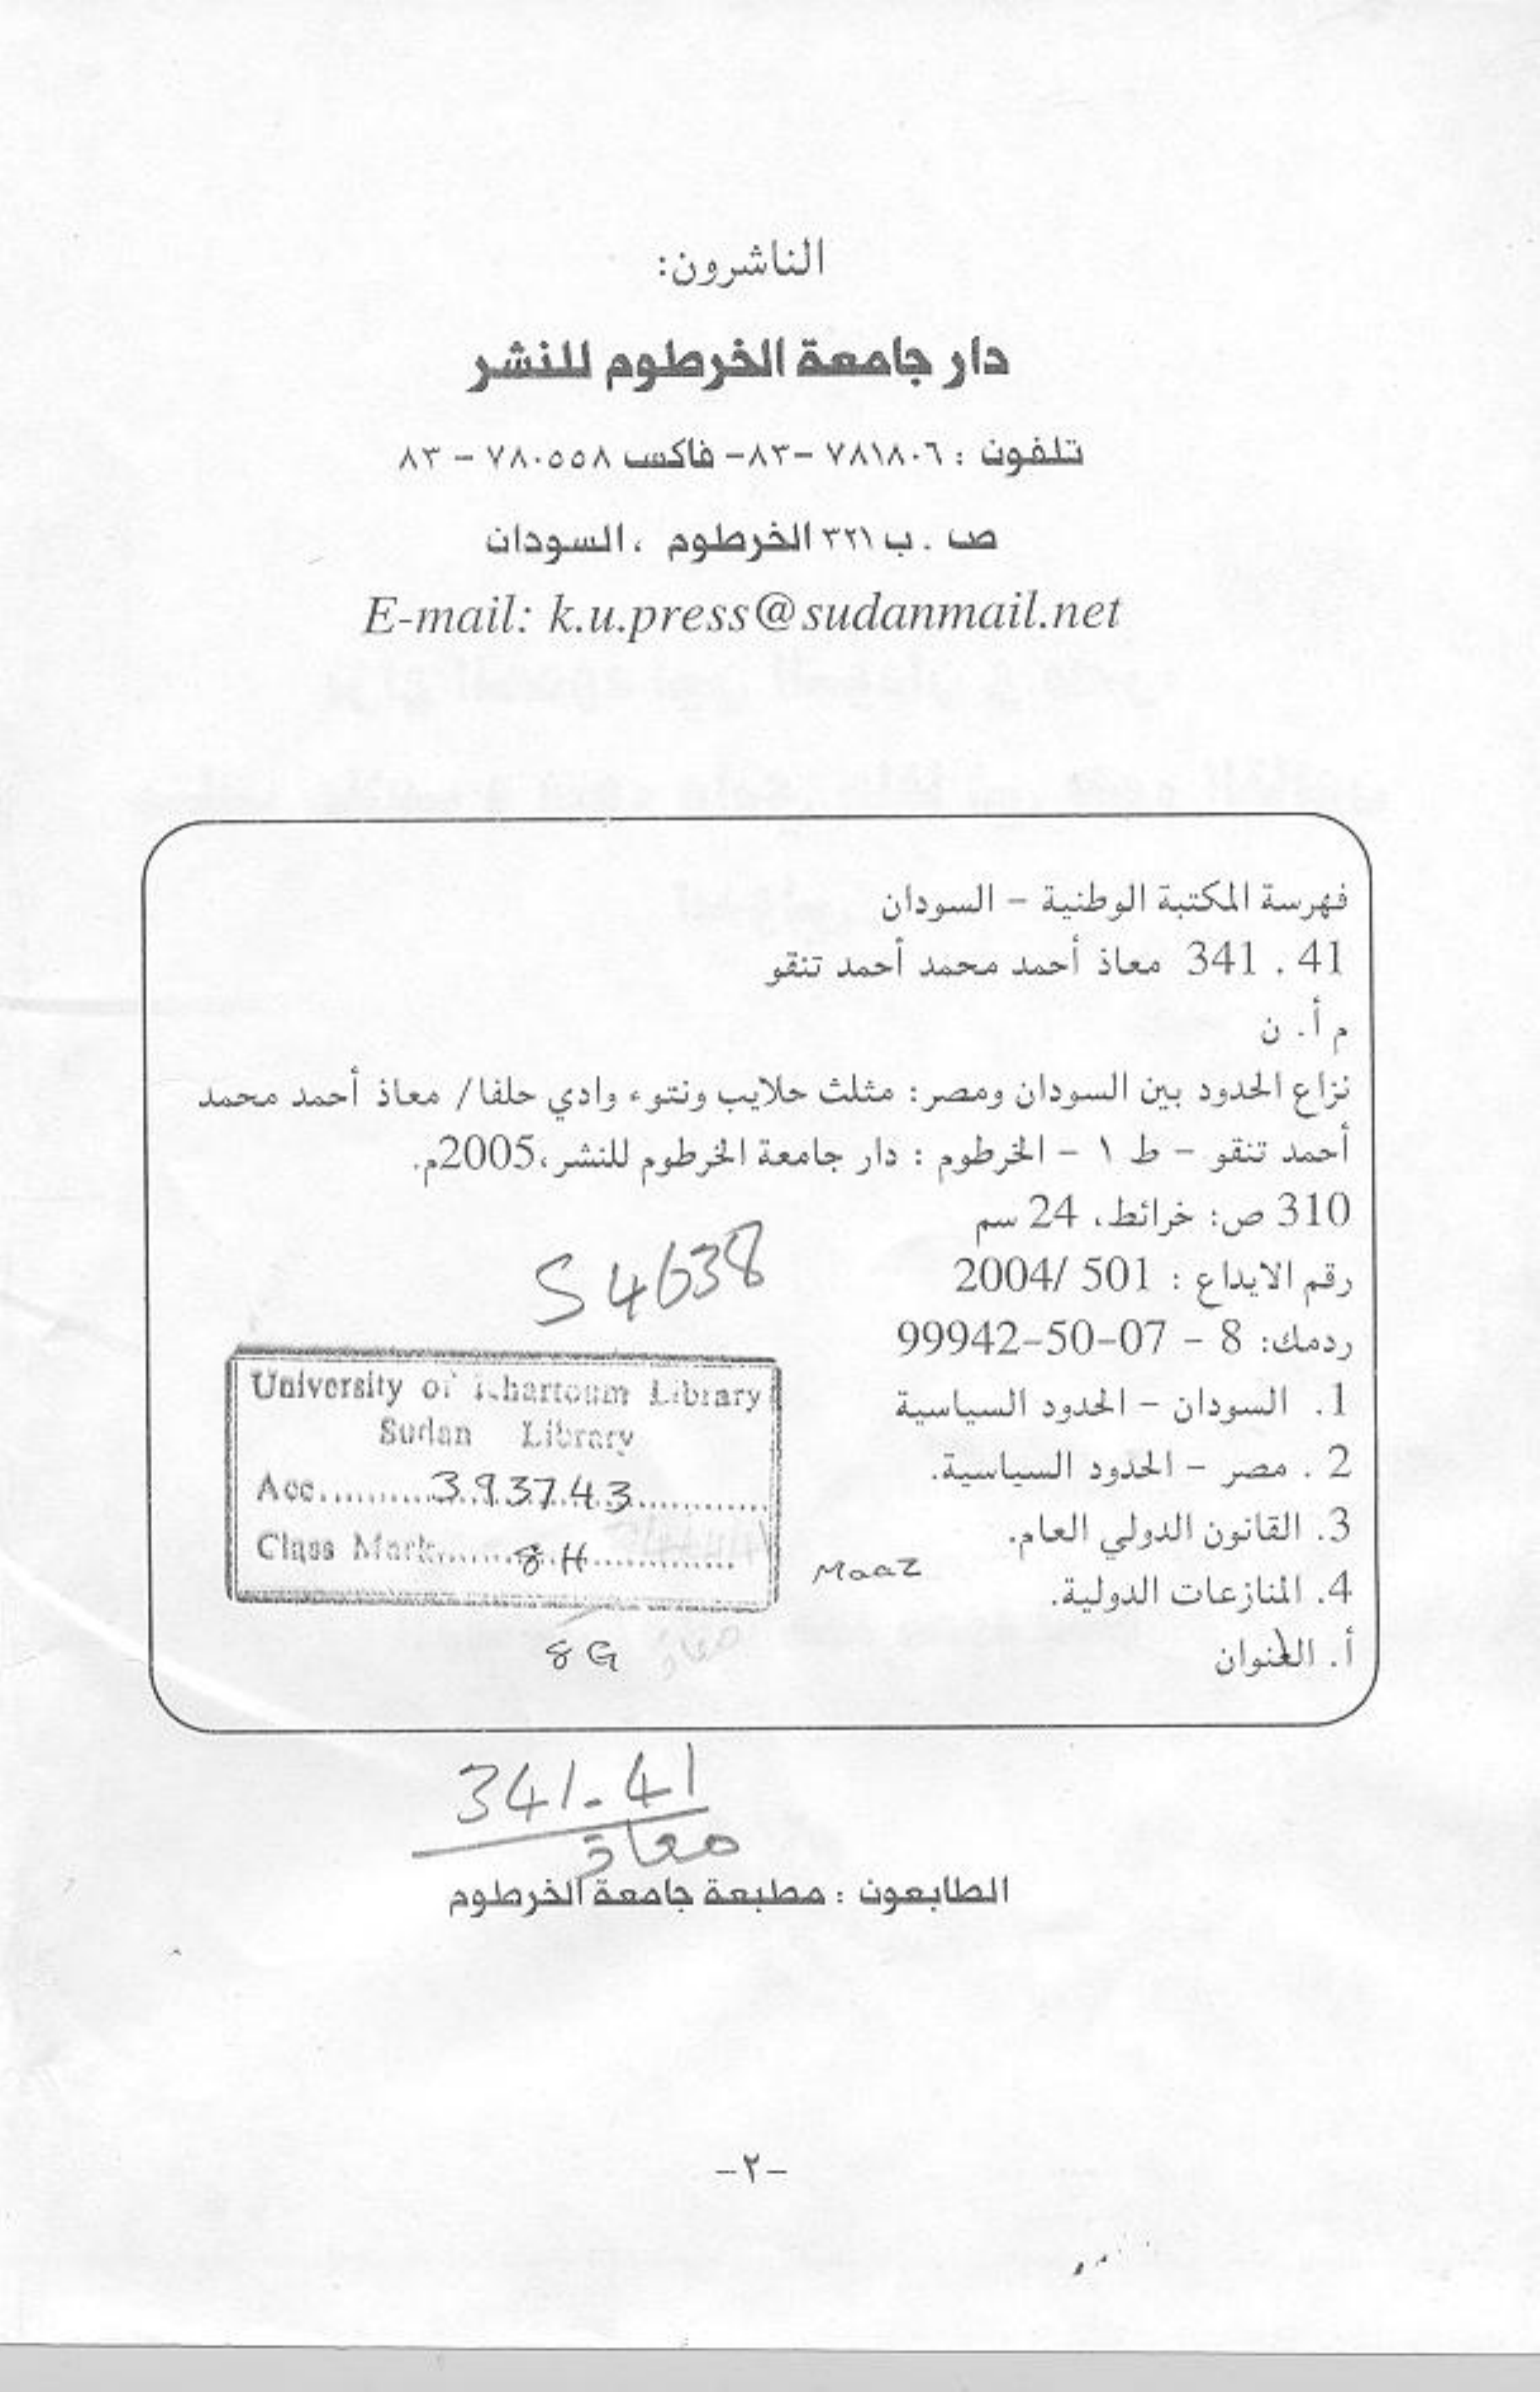 الناشرون:
دار جامعة الخرطوم للنشر
تلفون : ٧٨١٨٠٦ -٨٣- فاكس ٧٨٠٥٥٨ - ٨٣
ص . ب ٣٢١ الخرطوم ، السودان
E-mail: k.u.press@sudanmail.net
فهرسة المكتبة الوطنية - السودان
341 . 41 معاذ أحمد محمد أحمد تنقو
م أ. ن
نزاع الحدود بين السودان ومصر: مثلث حلايب ونتوء وادي حلفا/ معاذ أحمد محمد
أحمد تنقو - ط ١ - الخرطوم : دار جامعة الخرطوم للنشر،2005م.
310 ص: خرائط، 24 سم
رقم الايداع : 501 /2004
ردمك: 8 - 07-50-99942
1. السودان - الحدود السياسية
2 . مصر - الحدود السياسية.
3. القانون الدولي العام.
4. المنازعات الدولية.
أ. العنوان
S 4638
University of Khartoum Library
Sudan Library
Acc............393743............
Class Mark..........8H..............
Maaz
8G
معاذ
341.41
معاذ
الطابعون : مطبعة جامعة الخرطوم
-٢-